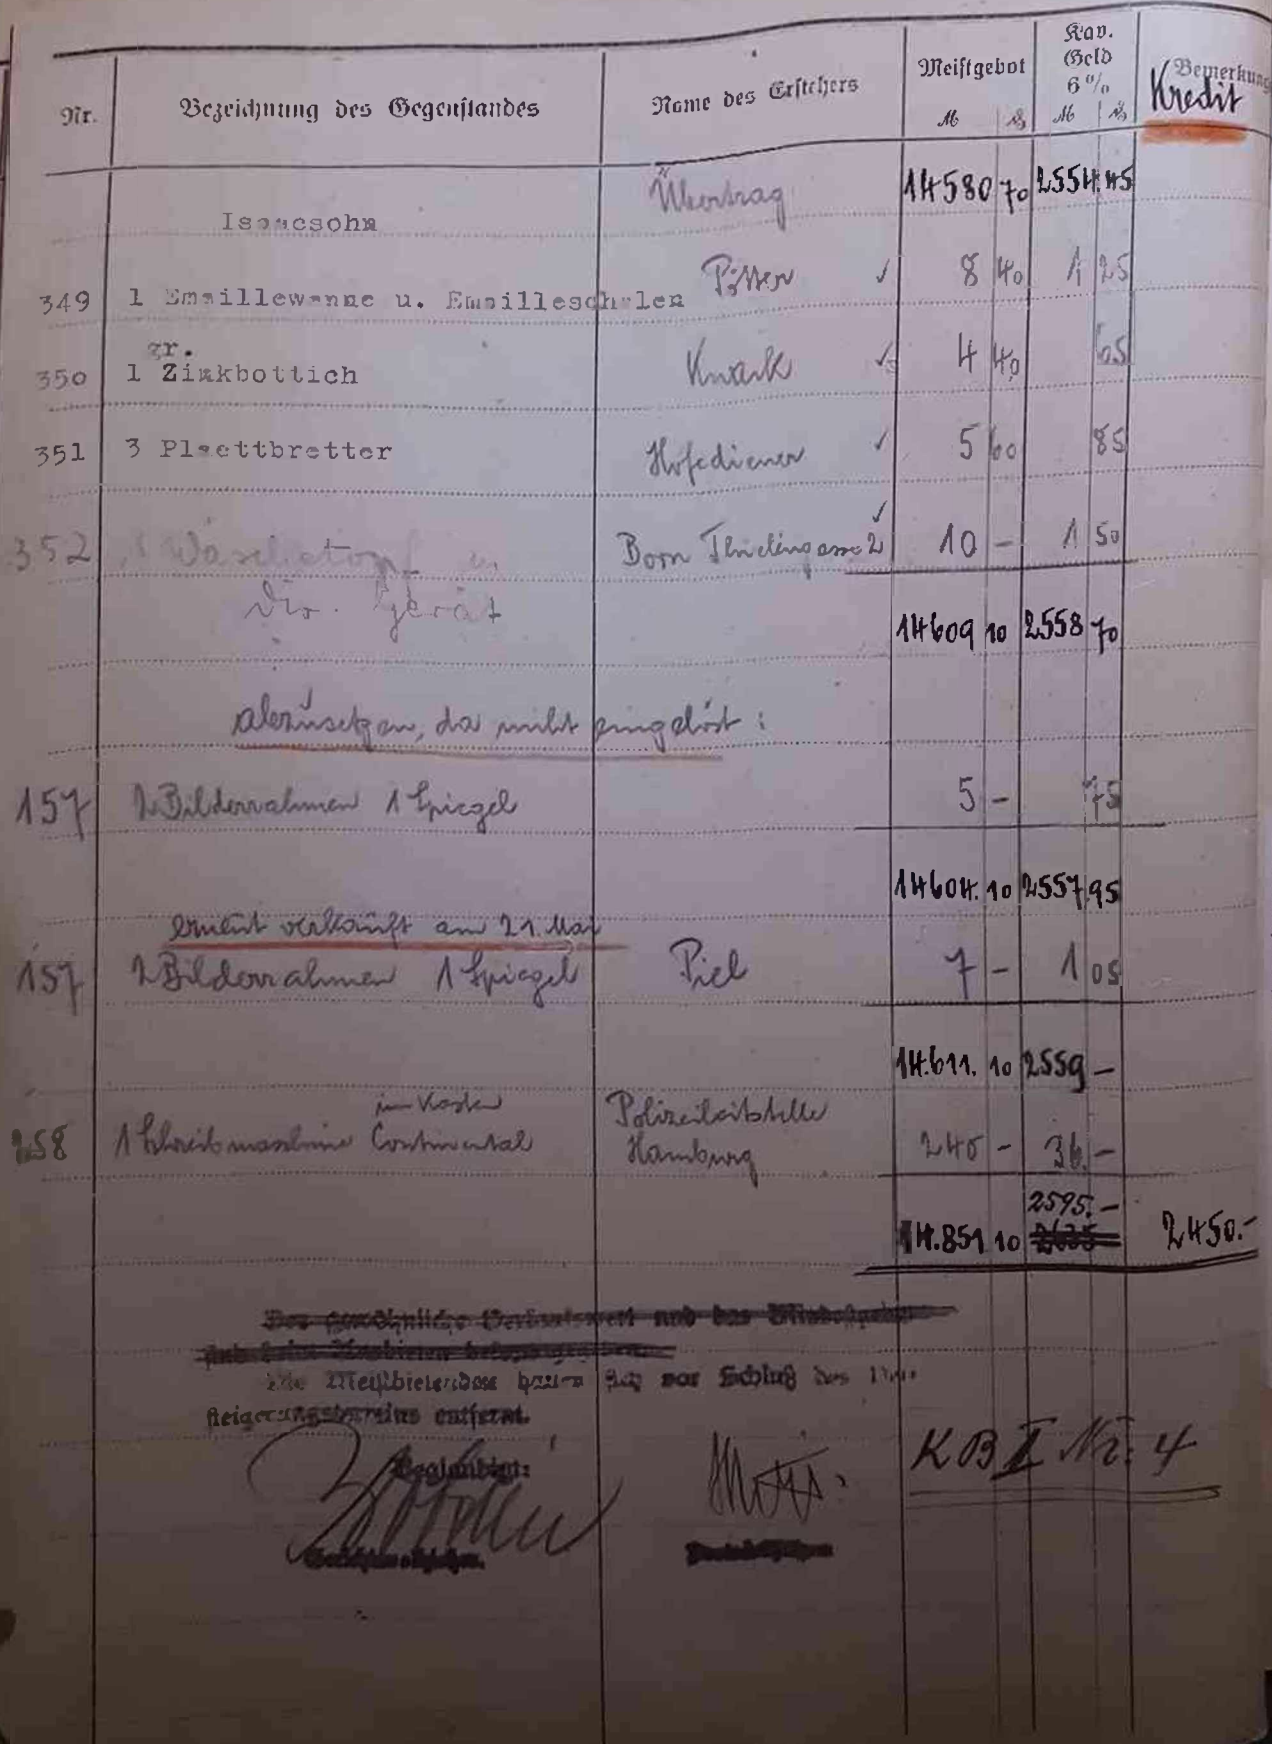 Nr. Bezeichnung des Gegenstandes Name des Erstehers Meistgebot M ₰ Kav. Geld 6% M ₰ Bemerkung
Kredit
Übertrag 14580 70 2554.45
Isaacsohn
349 1 Emaillewanne u. Emailleschalen ✓ 8 40 1, 25
gr.
350 1 Zinkbottich Knark ✓ 4 40 65
351 3 Plaettbretter Hofediener ✓ 5 60 85
352 1 Waschetopf u. Born 2 ✓ 10 – 1 50
div. Gerät
14609 10 2558 70
abzusetzen, da nicht eingelöst:
157 2 Bilderrahmen 1 Spiegel 5 – 75
14604. 10 2557 95
erneut verkauft am 21. Mai
157 2 Bilderrahmen 1 Spiegel Piel 7 – 1 05
14.611. 10 2559 –
im Kasten
258 1 Schreibmaschine Continental Polizeileitstelle Hamburg 240 – 36. –
2595. –
14.851 10 2450.-
Die Meistbietenden haben sich vor Schluß des Ver-
steigerungstermins entfernt.
Beglaubigt:
K B II Nr. 4